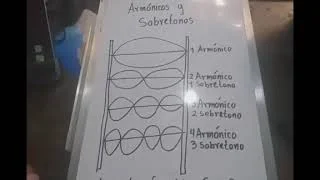 Armónicos y
Sobretonos
1 Armónico
2 Armónico
1 Sobretono
3 Armónico
2 sobretono
4 Armónico
3 sobretono